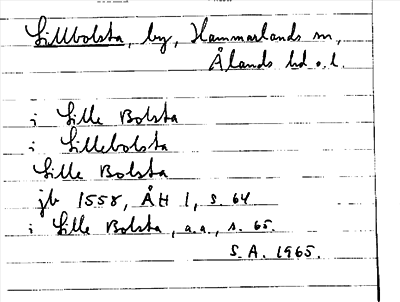 Lillbolsta, by, Hammarlands sn,
Ålands hd o. l.
i Lille Bolsta
i Lillebolsta
Lille Bolsta
jb 1558, ÅH 1, s. 64
i Lille Bolsta, a.a., s. 65.
S.A. 1965.